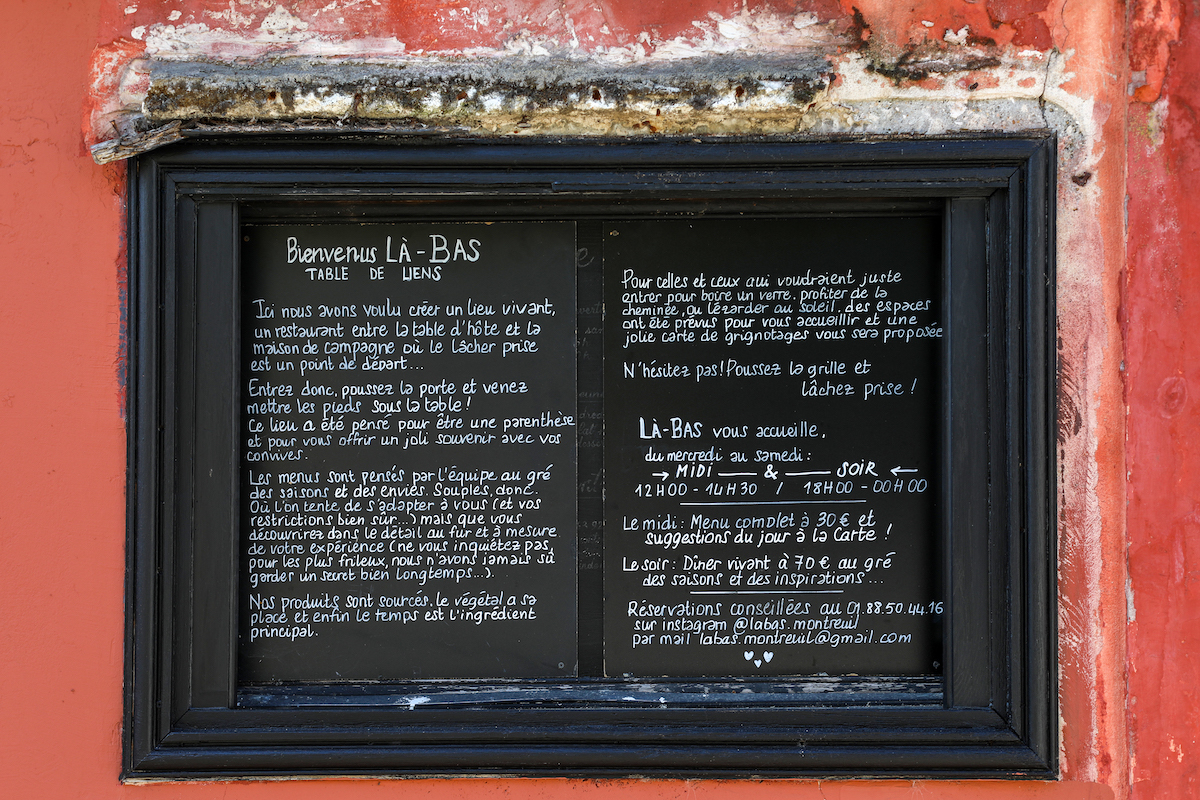 Bienvenus LÀ-BAS
TABLE DE LIENS
Ici nous avons voulu créer un lieu vivant,
un restaurant entre la table d'hôte et la
maison de campagne où le lâcher prise
est un point de départ...
Entrez donc, poussez la porte et venez
mettre les pieds sous la table !
Ce lieu a été pensé pour être une parenthèse
et pour vous offrir un joli souvenir avec vos
convives.
Les menus sont pensés par l'équipe au gré
des saisons et des envies. Souples, donc.
Où l'on tente de s'adapter à vous (et vos
restrictions bien sûr...) mais que vous
découvrirez dans le détail au fur et à mesure
de votre expérience (ne vous inquiétez pas,
pour les plus frileux, nous n'avons jamais su
garder un secret bien longtemps...).
Nos produits sont sourcés, le végétal a sa
place et enfin le temps est l'ingrédient
principal.
Pour celles et ceux qui voudraient juste
entrer pour boire un verre, profiter de la
cheminée, ou lézarder au soleil, des espaces
ont été prévus pour vous accueillir et une
jolie carte de grignotages vous sera proposée
N'hésitez pas ! Poussez la grille et
lâchez prise !
LÀ-BAS vous accueille,
du mercredi au samedi :
→ MIDI — & — SOIR ←
12H00 - 14H30 / 18H00 - 00H00
Le midi : Menu complet à 30 € et
suggestions du jour à la Carte !
Le soir : Dîner vivant à 70 € au gré
des saisons et des inspirations...
Réservations conseillées au 01.88.50.44.16
sur instagram @labas.montreuil
par mail labas.montreuil@gmail.com